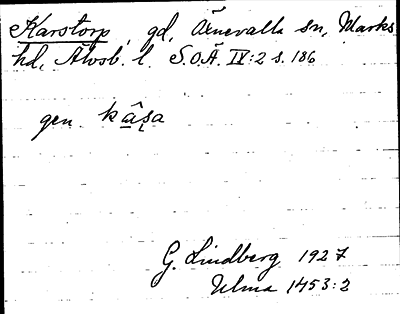 Karstorp, gd, Älekulla sn, Marks
hd, Älvsb. l. S.O.Ä. IX:2 s. 186
gen kâṣa
G. Lindberg 1927
Ulma 1453:2